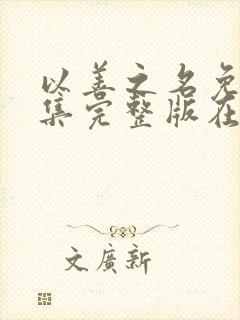 以善之名免
集完整版在
文廣新